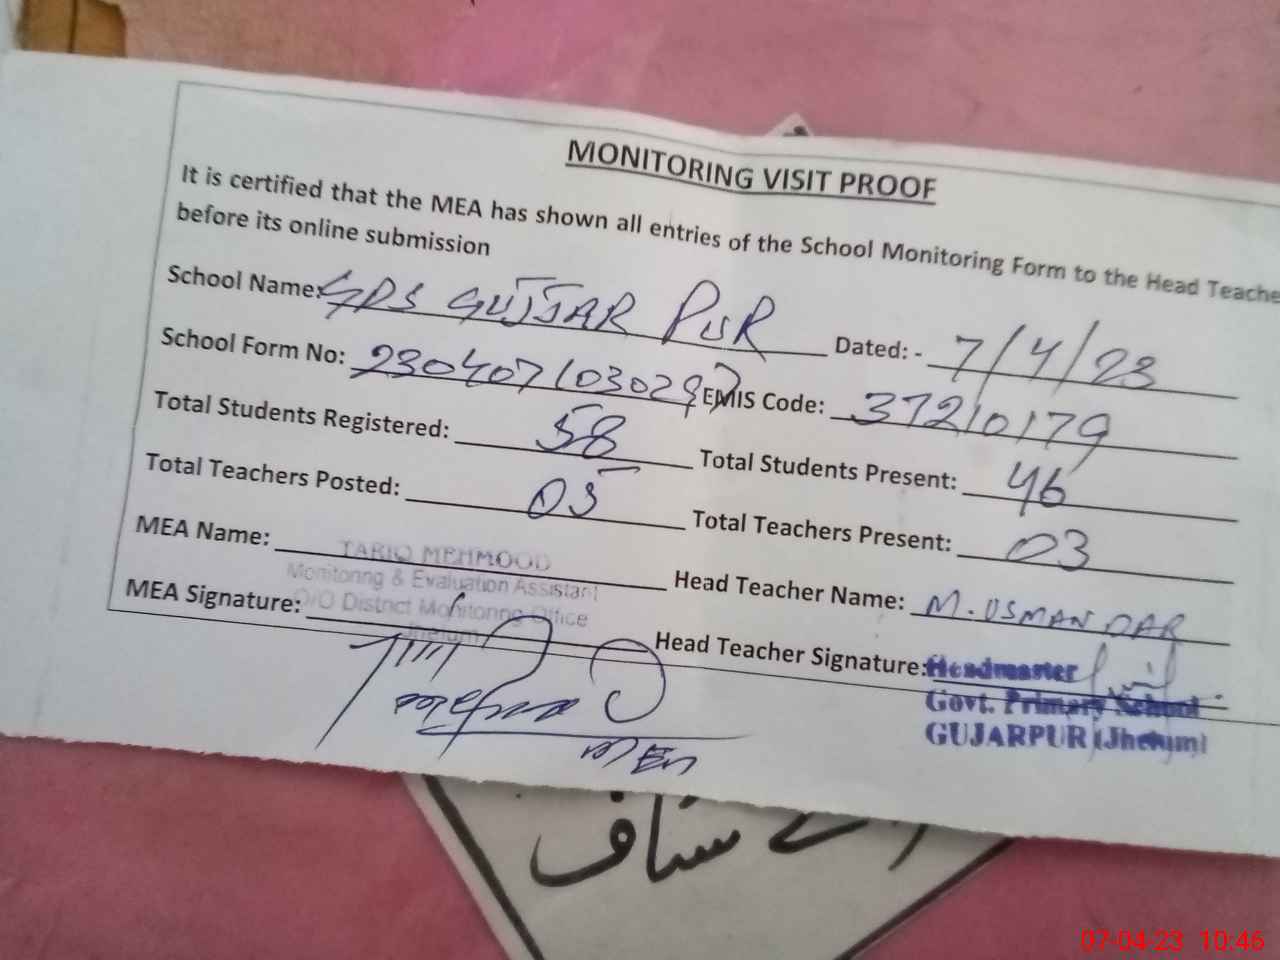 MONITORING VISIT PROOF
It is certified that the MEA has shown all entries of the School Monitoring Form to the Head Teache
before its online submission
School Name: GPS GUJJAR PUR Dated: - 7/4/23
School Form No: EMIS Code: 37210179
Total Students Registered: 58 Total Students Present: 46
Total Teachers Posted: 05 Total Teachers Present: 03
MEA Name: TARIQ MEHMOOD Head Teacher Name: M. USMAN DAR
Monitoring & Evaluation Assistant
MEA Signature: O/O District Monitoring Office Head Teacher Signature: Headmaster
Jhelum
Govt. Primary School
GUJARPUR (Jhelum)
MEA
سٹاف
07-04-23 10:46